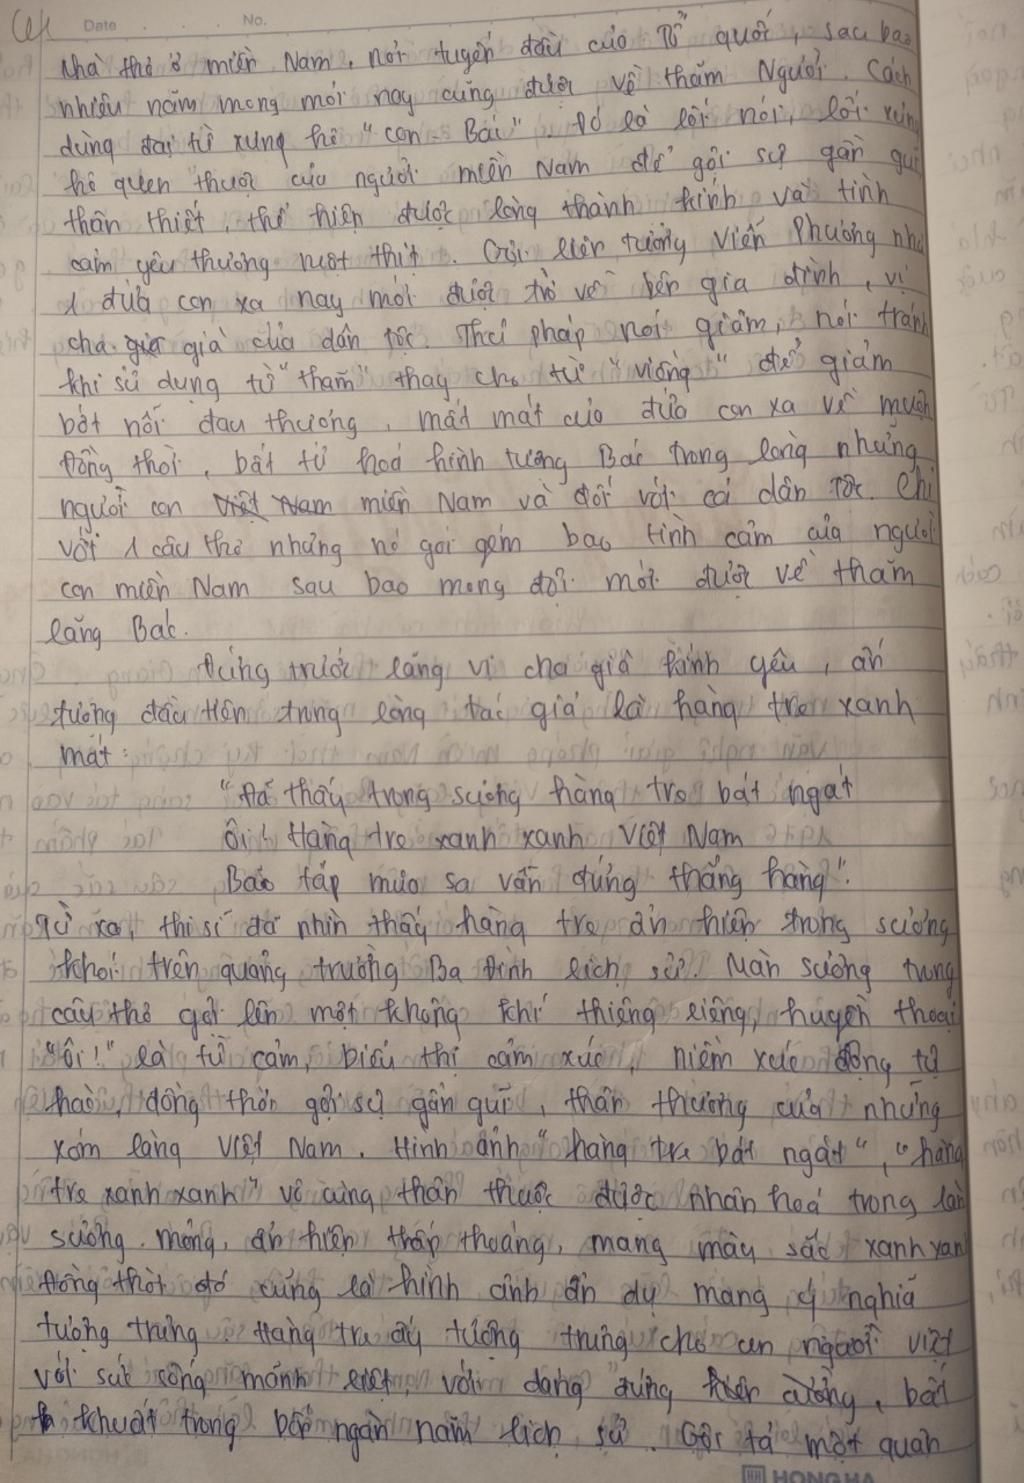 Date No.
Nhà thơ ở miền Nam, nơi tuyến đầu của Tổ quốc, sau bao
nhiêu năm mong mỏi nay cũng được về thăm Người. Cách
dùng đại từ xưng hô "con - Bác". Đó là lối nói, lối xưng
hô quen thuộc của người miền Nam để gợi sự gần gũi
thân thiết, thể hiện được lòng thành kính và tình
cảm yêu thương ruột thịt. Gợi liên tưởng Viễn Phương như
1 đứa con xa nay mới được trở về bên gia đình, vị
cha già của dân tộc. Thủ pháp nói giảm, nói tránh
khi sử dụng từ "thăm" thay cho từ "viếng" để giảm
bớt nỗi đau thương, mất mát của đứa con xa về muộn
đồng thời, bất tử hoá hình tượng Bác trong lòng những
người con miền Nam và đối với cả dân tộc. Chỉ
với 1 câu thơ nhưng nó gói gém bao tình cảm của người
con miền Nam sau bao mong đợi mới được về thăm
lăng Bác.
Đứng trước lăng vị cha già kính yêu, ấn
tượng đầu tiên trong lòng tác giả là hàng tre xanh
mát:
"Đã thấy trong sương hàng tre bát ngát
Ôi! Hàng tre xanh xanh Việt Nam
Bão táp mưa sa vẫn đứng thẳng hàng".
Từ xa, thi sĩ đã nhìn thấy hàng tre ẩn hiện trong sương
khói trên quảng trường Ba Đình lịch sử. Màn sương trong
câu thơ gợi lên một không khí thiêng liêng, huyền thoại
"Ôi!" là từ cảm, biểu thị cảm xúc, niềm xúc động tự
hào, đồng thời gợi sự gần gũi, thân thương của những
xóm làng Việt Nam. Hình ảnh "hàng tre bát ngát", "hàng
tre xanh xanh" vô cùng thân thuộc được nhân hoá trong làn
sương mỏng, ẩn hiện thấp thoáng, mang màu sắc xanh xanh
đồng thời đó cũng là hình ảnh ẩn dụ mang ý nghĩa
tượng trưng. Hàng tre ấy tượng trưng cho con người Việt
với sức sống mãnh liệt, với dáng đứng kiên cường, bất
khuất trong bốn ngàn năm lịch sử. Gợi tả một quân
HONGHA